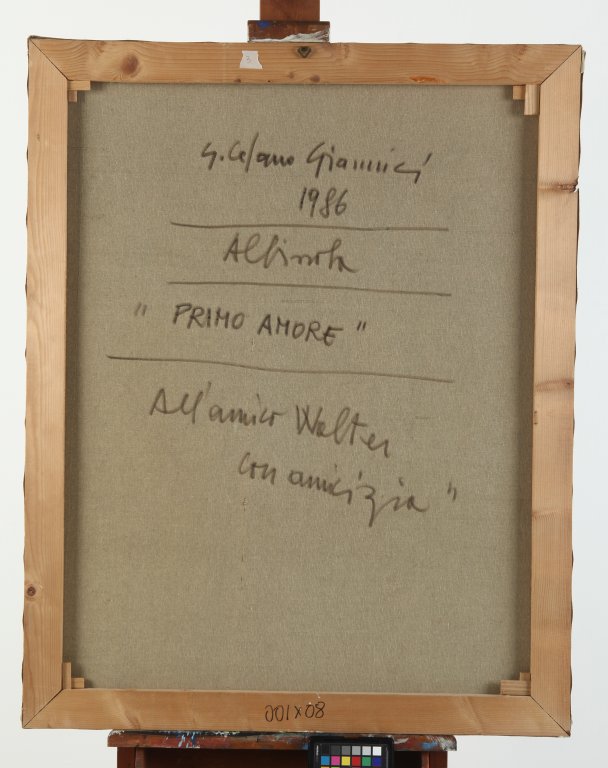 3
G. Cefano Giannici
1986
Albinola
" PRIMO AMORE "
All'amico Walter
con amicizia "
001x08